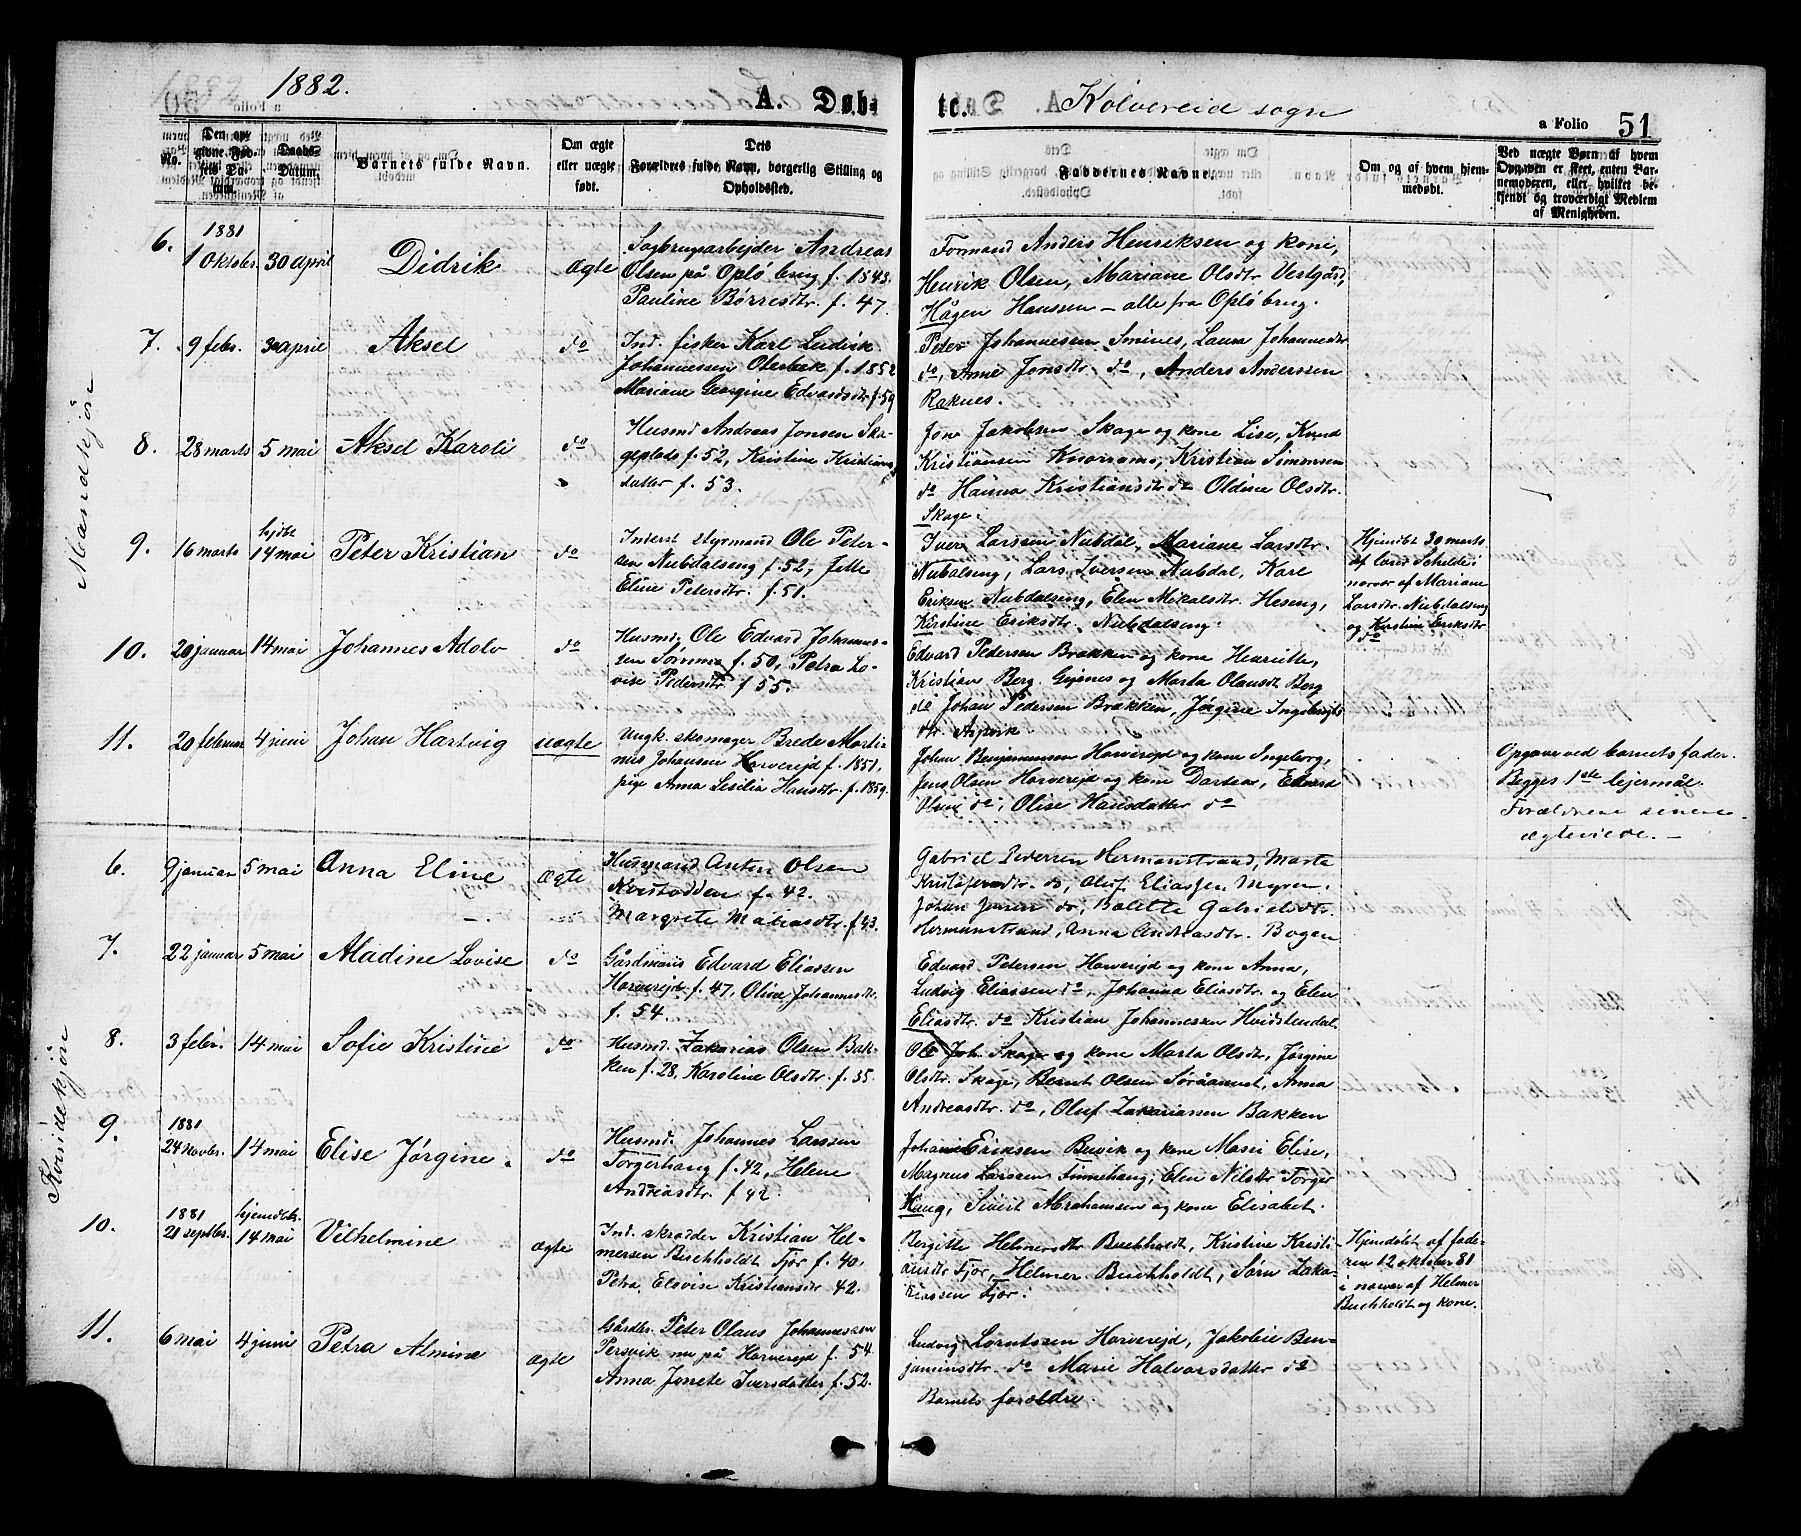 1882.
A. Døb-
te.
Kolvereid sogn
a Folio 51
No.
Den op-
givne Fød-
sels Da-
tum.
Daabs-
Datum.
Barnets fulde Navn.
Om ægte
eller uægte
født.
Dets
Forældres fulde Navn, borgerlig Stilling og
Opholdssted.
Faddernes Navne.
Om og af hvem hjem-
medøbt.
Ved uægte Børn af hvem
Opgaven er skeet, enten Bar-
nemoderen, eller hvilket be-
kjendt og troværdigt Medlem
af Menigheden.
Mandkjøn
6.
1881
1 oktober.
30 april
Didrik
Ægte
Sagbrugsarbejder Andreas
Olsen på Opløbrug f. 1843.
Pauline Børresdtr. f. 47.
Formand Anders Henriksen og kone,
Henrik Olsen, Mariane Olsdtr Vestgård,
Hågen Hanssen – alle fra Opløbrug.
7.
9 febr.
30 april
Aksel
do
Ind. fisker Karl Ludvik
Johannessen Oterbæk f. 1852
Mariane Georgine Edvardsdtr f. 59
Peter Johannesen Smines, Laura Johannesdtr
do, Anne Jonsdtr. do, Anders Anderssen
Raknes.
8.
28 marts
5 mai
Aksel Karoli
do
Husmd Andreas Jonsen Ska-
geplads f. 52, Kristine Kristians-
datter f. 53.
Jon Jakobsen Skage og kone Lise, Knud
Kristiansen, Kristian Simonsen
do Hanna Kristiansdtr do Oldine Olsdtr.
Skage.
9.
16 marts
hjdt
14 mai
Peter Kristian
do
Inderst styrmand Ole Peter-
sen Nubdalseng f. 52, Jette
Eline Petersdtr. f. 51.
Iver Larssen Nubdal, Mariane Larsdtr.
Nubdalseng, Lars Iversen Nubdal, Karl
Eriksen Nubdalseng, Elen Mikalsdtr. Heseng,
Kirstine Eriksdtr. Nubdalseng.
Hjemdbt 30 marts
af lærer Schelde i
nærvær af Mariane
Larsdtr. Nubdalseng
og Kirstine Eriksdtr
do
10.
20 januar
14 mai
Johannes Adolv
do
Husmd. Ole Edvard Johannes-
sen Sømme f. 50, Petra Lo-
vise Pedersdtr f 55.
Edvard Pedersen Brækken og kone Henriette,
Kristian Berg Gjønes og Marta Olausdt Berg
do Johan Pedersen Brækken, Jørgine Ingebrigts
dtr
11.
20 februar
4 juni
Johan Hartvig
uægte
Ungk. skomager Brede Marti-
nus Johansen Horverejd f. 1851,
pige Anna Lesilia Hansdtr. f. 1859.
Johan Benjaminsen Horverejd og kone Ingeborg,
Jens Olsen Horverejd og kone Dartea, Edvard
Olsen do, Olise Hansdatter do
Opgave ved barnets fader.
Begges 1ste lejermål.
Forældrene senere
ægteviede. –
Kvindekjøn
6.
9 januar
5 mai
Anna Eline
Ægte
Husmand Anton Olsen
Kvistodden f. 42.
Margrete Matiasdtr. f. 43.
Gabriel Pedersen Hermanstrand, Marta
Kristofersdtr. do, Oluf Eliassen Myren,
Johan Jensen do, Bolette Gabrielsdtr.
Hermanstrand, Anna Andreasdtr. Bogen
7.
22 januar
5 mai
Aladine Lovise
do
Gårdmand Edvard Eliassen
Horverejd f. 47, Oline Johannesdtr.
f. 54.
Edvard Petersen Horverejd og kone Anna,
Ludvig Eliassen do, Johanna Eliasdtr. og Elen
Eliasdtr. do Kristian Johannessen Hvidstendal.
8.
3 febr.
14 mai
Sofie Kristine
do
Husmd. Zakarias Olsen Bak-
ken f. 28, Karoline Olsdtr. f. 35.
Ole Joh. Skage og kone Marta Olsdt, Jørgine
Olsdtr. Skage, Bernt Olsen Søråamot, Anna
Andreasdtr. do, Oluf Zakariassen Bakken
9.
1881
24 novbr.
14 mai
Elise Jørgine.
do
Husmd. Johannes Larssen
Torgerhaug f. 42, Helene
Andreasdtr. f 42.
Johan Eriksen Buvik og kone Massi Elise,
Magnus Larssen Finnehaug, Elen Nilsdtr Torger
Haug, Sivert Abrahamsen og kone Elisabet.
10.
1881
21 septbr.
hjemdbt.
14 mai
Vilhelmine
Ægte
Ind. skrædder Kristian Hel-
mersen Buchholdt Fjør f. 40.
Petra Elovise Kristiansdtr 42.
Bergitte Helmersdtr Buchholdt, Kristine Kristi-
ansdtr Fjør, Helmer Buchholdt, Søren Zaka-
riassen Fjør.
Hjemdøbt af fade-
ren 12 oktober 81
i nærvær af Helmer
Buchholdt og kone.
11.
6 mai
4 juni
Petra Almine
Ægte
Gårdbr. Peter Olaus Johannessen
Persvik nu på Horverejd f. 54.
Anna Jonete Iversdatter f. 52.
Ludvig Lorntssen Horverejd, Jakobie Ben-
jaminsdtr. do Marie Halvorsdatter do
Barnets forældre.